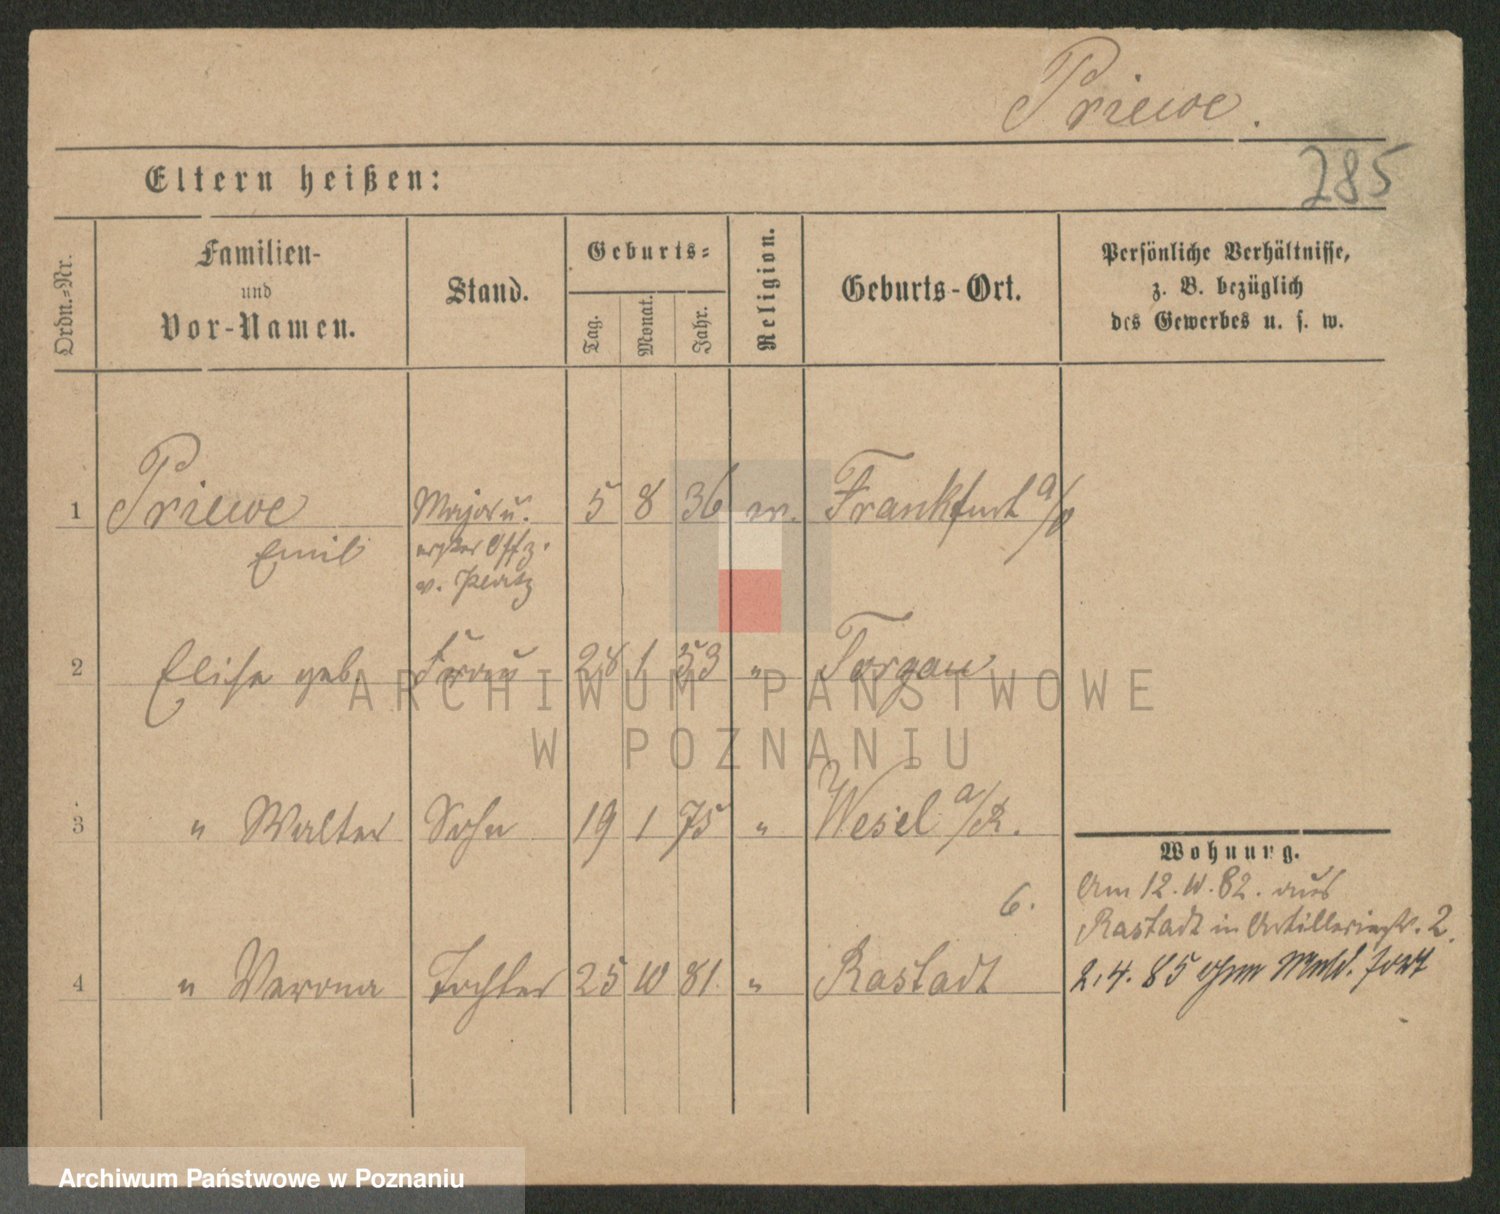 Priewe.
285
Eltern heißen:
Ordn.-Nr.
Familien-
und
Vor-Namen.
Stand.
Geburts-
Tag.
Monat.
Jahr.
Religion.
Geburts-Ort.
Persönliche Verhältnisse,
z. B. bezüglich
des Gewerbes u. s. w.
1 Priewe Major u. 5 8 36 ev. Frankfurt a/O
Emil erster Offz.
v. Platz
2 Elise geb. Frau 28 1 53 " Torgau
ARCHIWUM PAŃSTWOWE
W POZNANIU
3 " Walter Sohn 19 1 75 " Wesel a/R.
Wohnung.
6. Am 12. 10. 82. aus
Rastadt in Artilleriestr. 2.
4 " Verona Tochter 25 10 81. " Rastadt
2.4.85 ohne Meld. fort
Archiwum Państwowe w Poznaniu